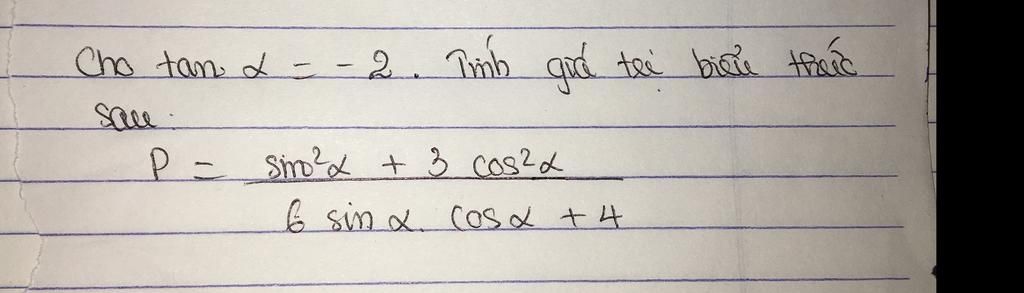 Cho tan α = -2. Tính giá trị biểu thức
sau:
P = sin²α + 3 cos²α
6 sin α. cosα + 4